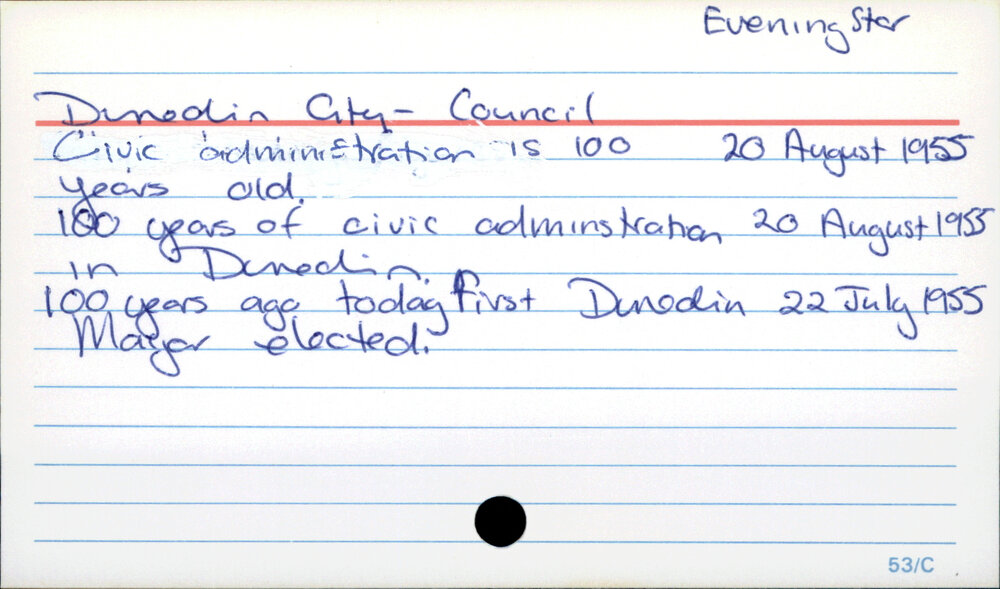 Evening Star
Dunedin City - Council
Civic administration is 100 20 August 1955
years old.
100 years of civic adminstration 20 August 1955
in Dunedin.
100 years ago today first Dunedin 22 July 1955
Mayor elected.
53/C